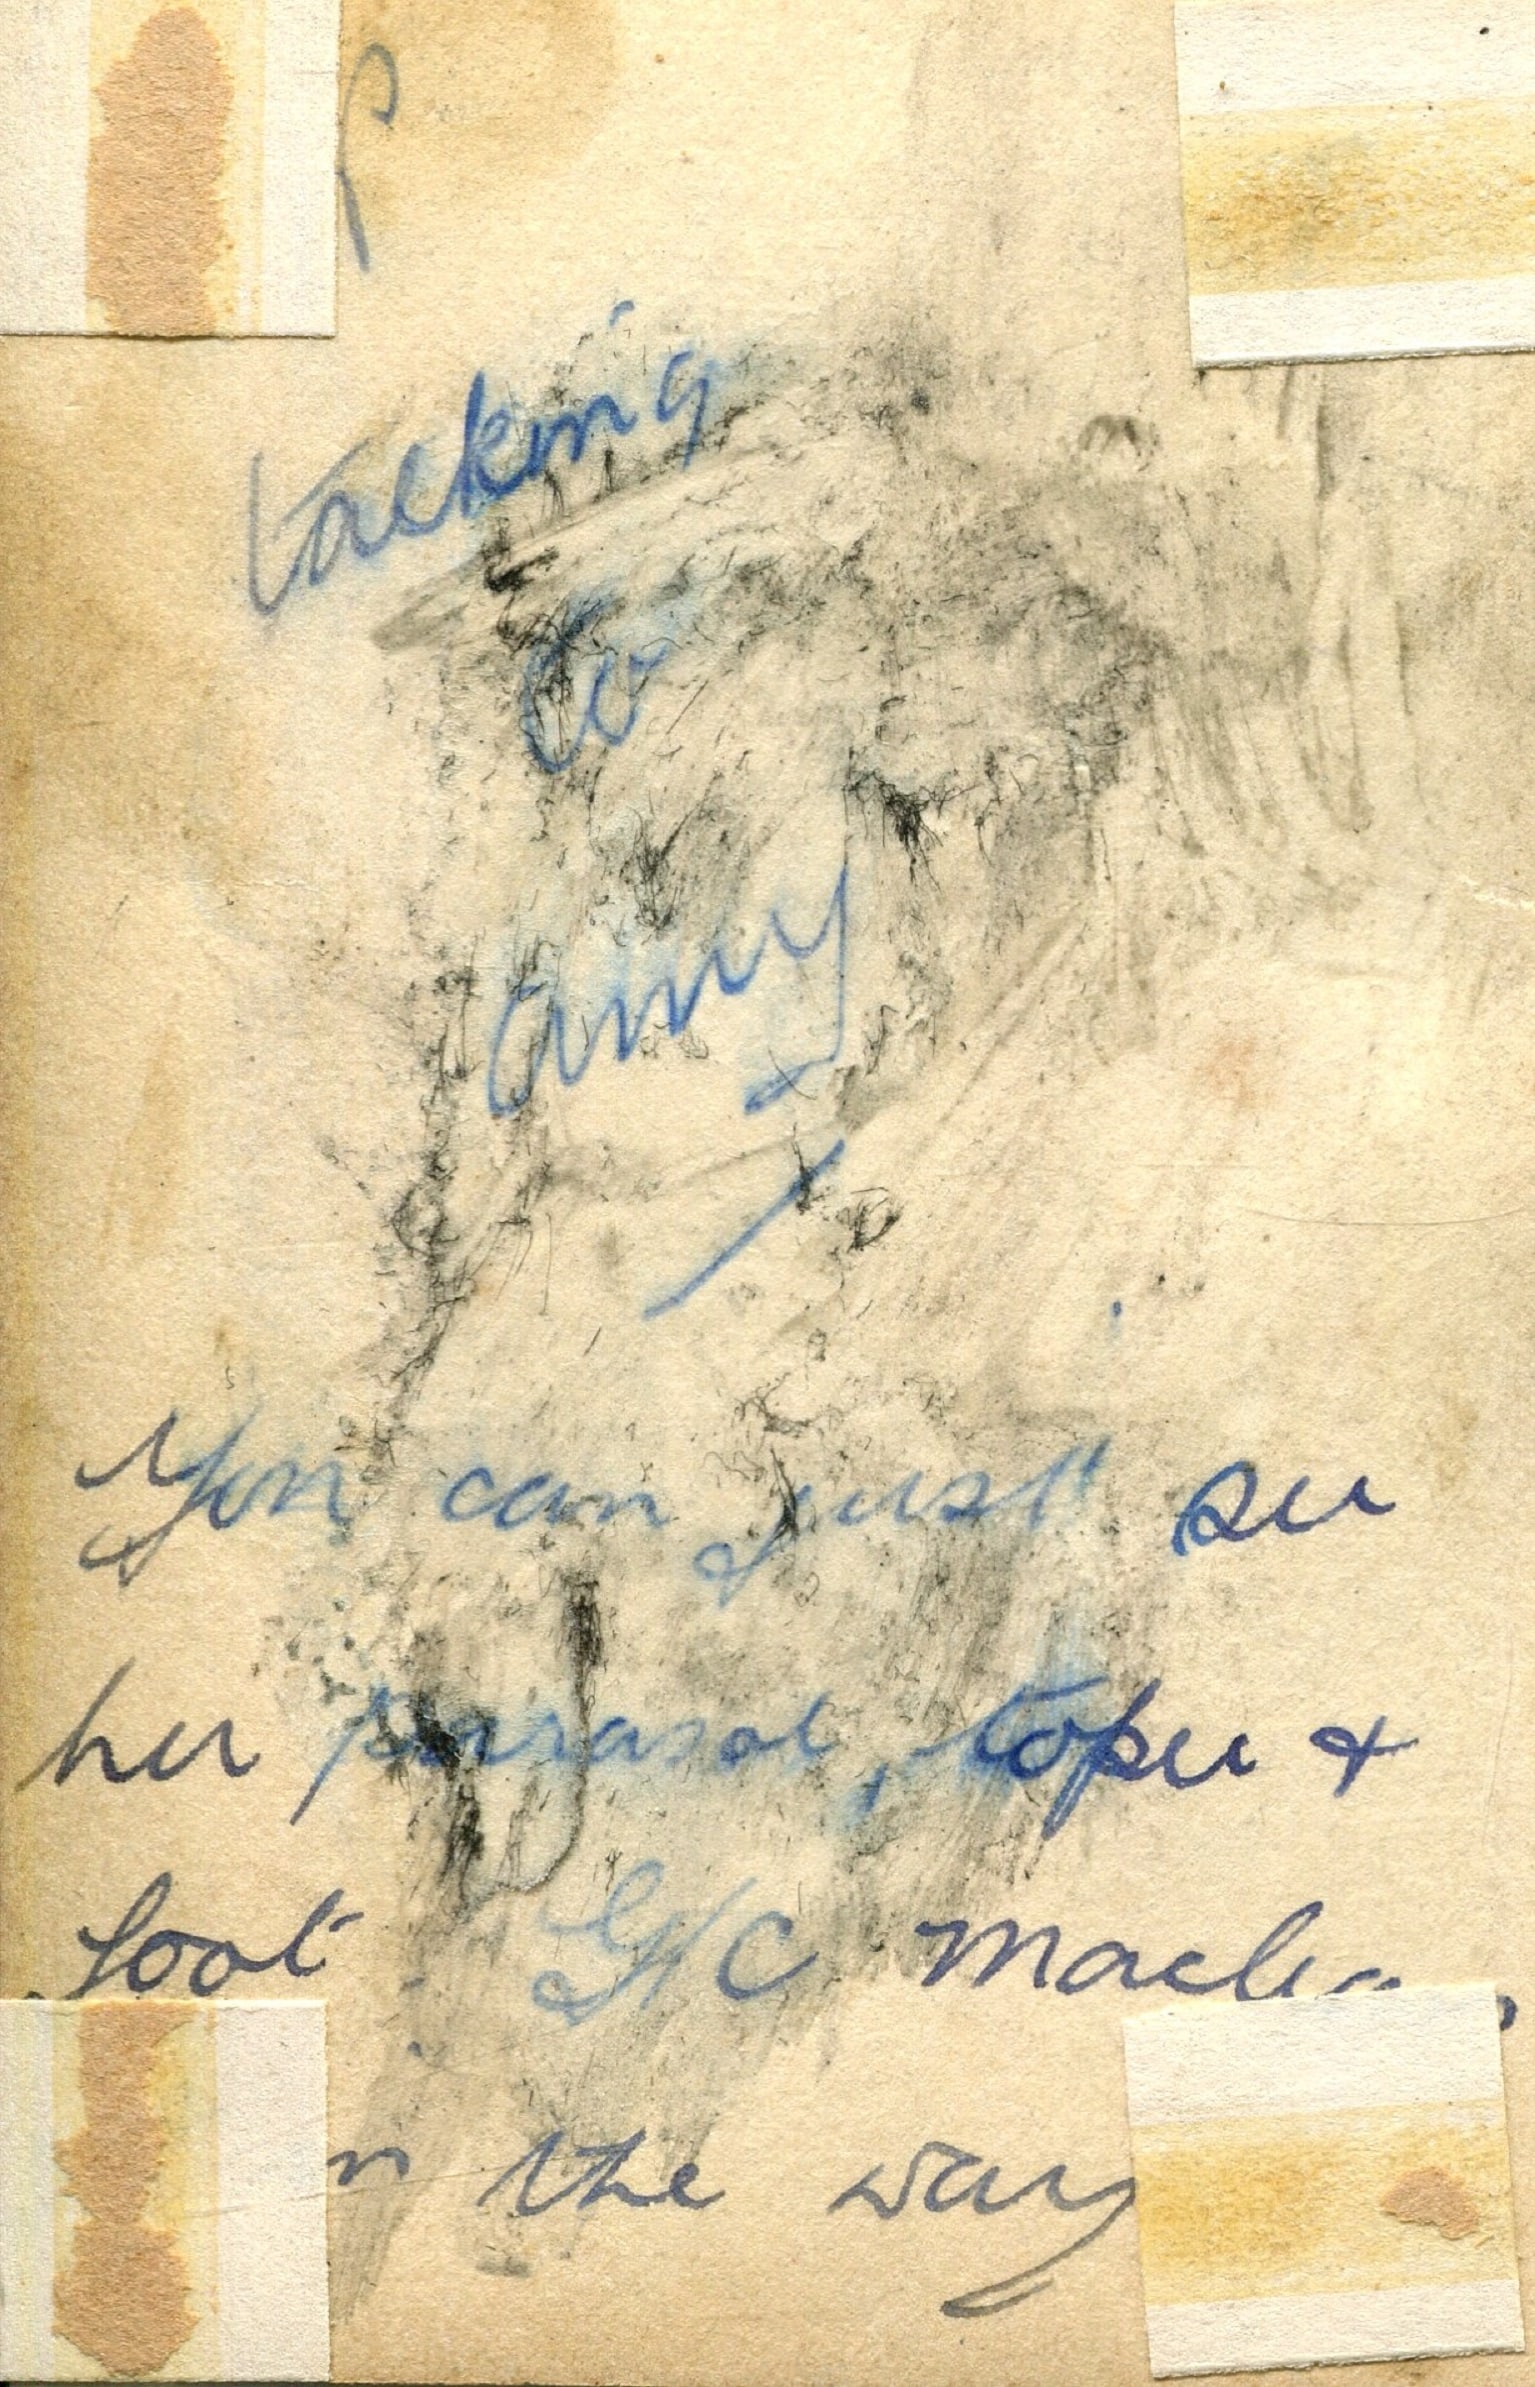 talking
to
amy
You can just see
her parasol, topee &
foot G/C Maclea
n the way